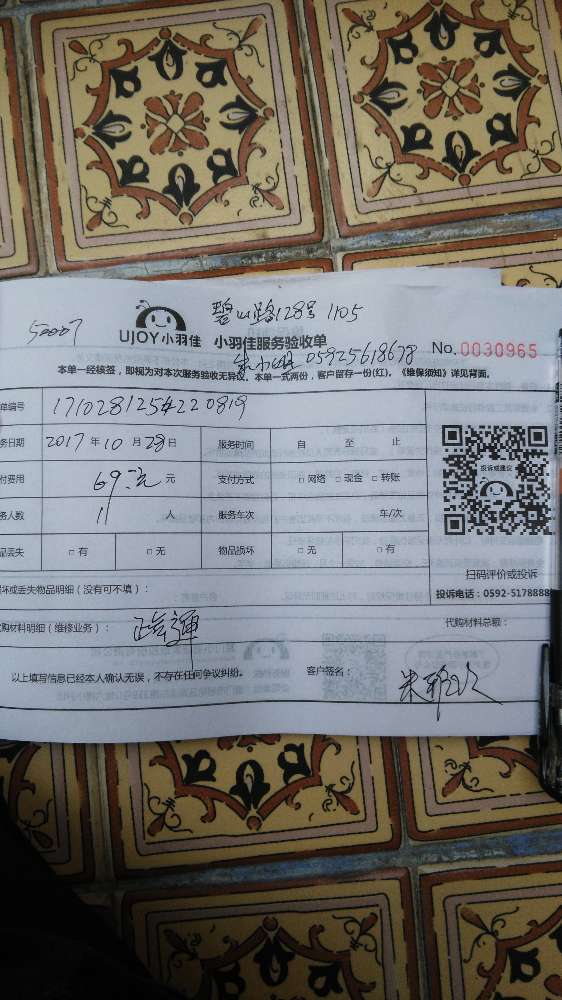 碧山路128号 1105
50007
UJOY小羽佳 小羽佳服务验收单
朱小姐 05925618678 No.0030965
本单一经核签,即视为对本次服务验收无异议。本单一式两份,客户留存一份(红)。《维保须知》详见背面。
单编号 1710281254220819
务日期 2017年10月28日 服务时间 自 至 止
付费用 69元 元 支付方式 □ 网络 □ 现金 □ 转账
务人数 人 服务车次 车/次
品丢失 □ 有 □ 无 物品损坏 □ 无 □ 有
投诉或建议
扫码评价或投诉
投诉电话:0592-5178888
损坏或丢失物品明细(没有可不填):
购材料明细(维修业务): 代购材料总额:
以上填写信息已经本人确认无误,不存在任何争议纠纷。 客户签名: